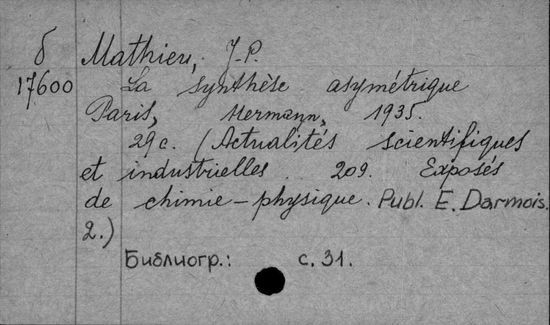 б Mathieu, J.-P.
17600 La synthèse asymétrique
Paris, Hermann, 1935.
29c. (Actualités scientifiques
et industrielles. 209. Exposés
de chimie-physique. Publ. E. Darmois.
2.)
Библиогр.: с. 31.